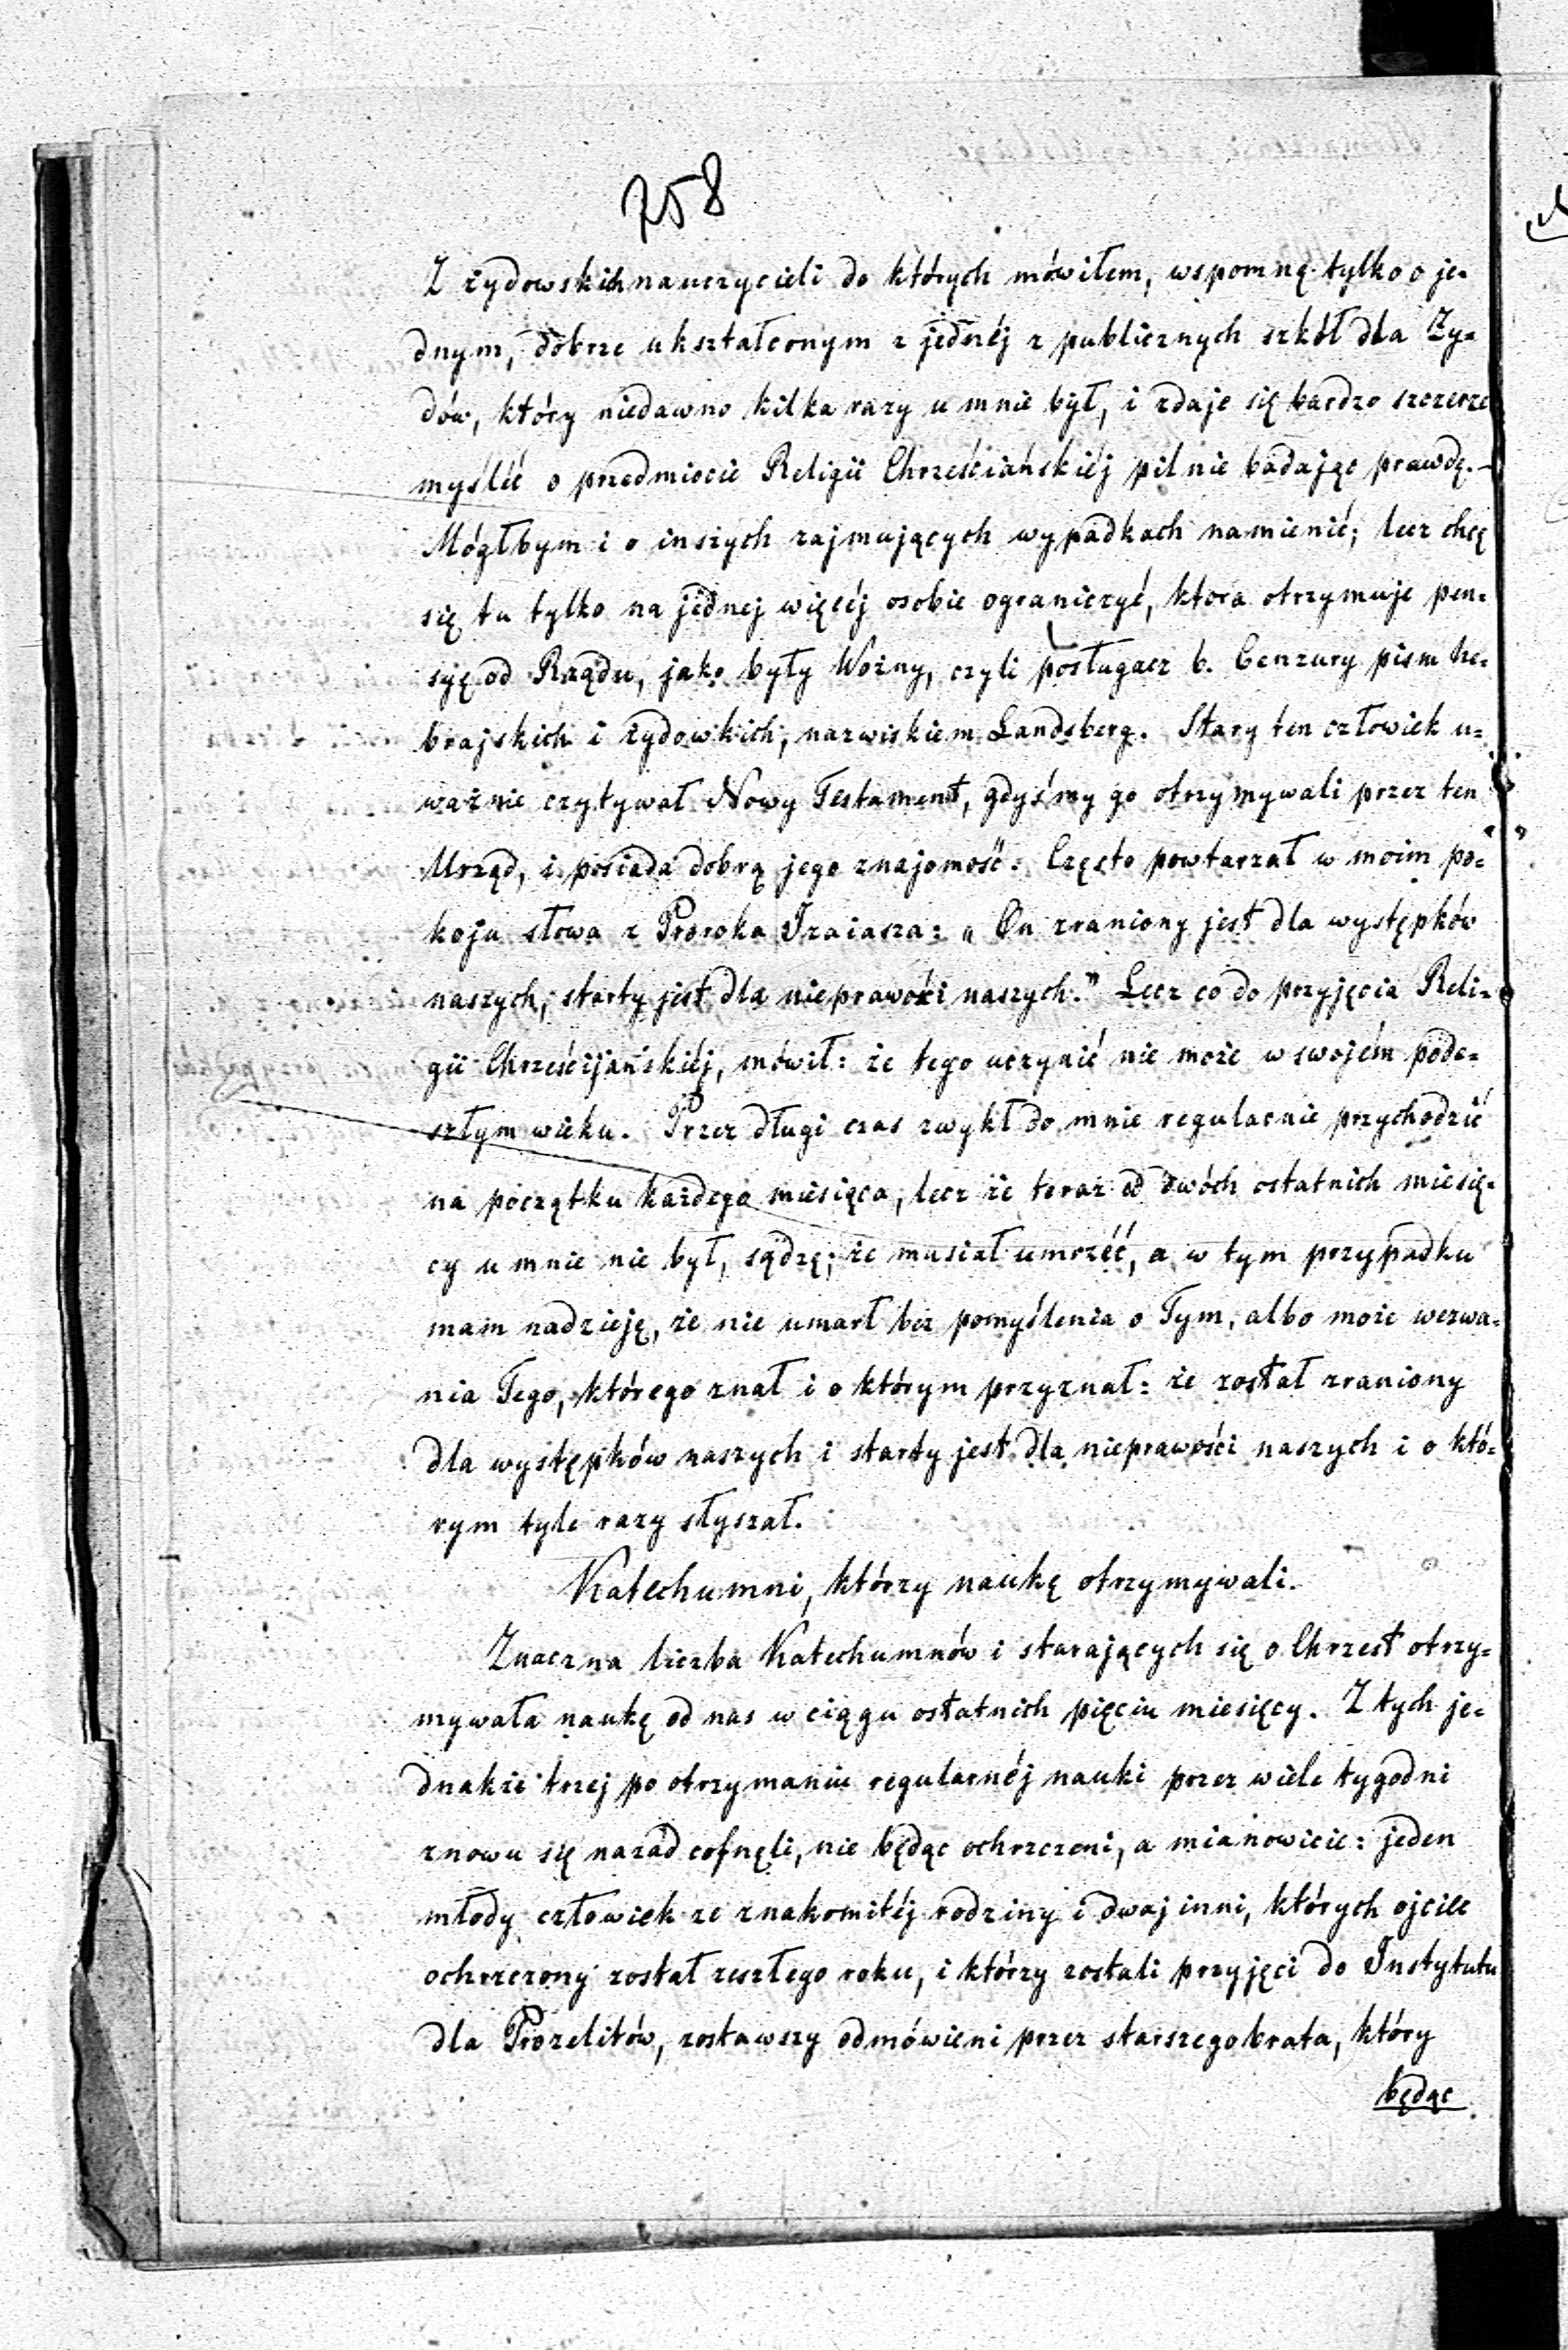 758
Z żydowskich nauczycieli do których mówiłem, wspomnę tylko o je-
dnym, dobrze ukształconym z jednéj z publicznych szkół dla Ży-
dów, który niedawno kilka razy u mnie był, i zdaje się bardzo szczerze
myśléć o przedmiocie Religii Chrześciańskiéj pilnie badając prawdę.—
Mógłbym i o inszych zajmujących wypadkach namienić; lecz chcę
się tu tylko na jednej więcéj osobie ograniczyć, ktora otrzymuje pen-
syę od Rządu, jako były Woźny, czyli posługacz b. Cenzury pism he-
brajskich i żydowkich, nazwiskiem Landsberg. Stary ten człowiek u-
ważnie czytywał Nowy Testament, gdyśmy go otrzymywali przez ten
Urząd, i posiada dobrą jego znajomość. Często powtarzał w moim po-
koju słowa z Proroka Izaiasza: „On zraniony jest dla występków
naszych, starty jest dla nieprawości naszych." Lecz co do przyjęcia Reli-
gii Chrześcijańskiéj, mówił: że tego uczynić nie może w swojém pode-
szłym wieku. Przez długi czas zwykł do mnie regularnie przychodzić
na początku każdego miesiąca, lecz że teraz od dwóch ostatnich miesię-
cy u mnie nie był, sądzę, że musiał umrzéć, a w tym przypadku
mam nadzieję, że nie umarł bez pomyślenia o Tym, albo może wezwa-
nia Tego, którego znał i o którym przyznał: że został zraniony
dla występków naszych i starty jest dla nieprawości naszych i o któ-
rym tyle razy słyszał.
Katechumni, którzy naukę otrzymywali.
Znaczna liczba Katechumnów i starających się o Chrzest otrzy-
mywała naukę od nas w ciągu ostatnich pięciu miesięcy. Z tych je-
dnakże trzej po otrzymaniu regularnéj nauki przez wiele tygodni
znowu się nazad cofnęli, nie będąc ochrzczeni, a mianowicie: jeden
młody człowiek ze znakomitéj rodziny i dwaj inni, których ojciec
ochrzczony został zeszłego roku, i którzy zostali przyjęci do Instytutu
dla Prozelitów, zostawszy odmówieni przez starszego brata, który
będąc